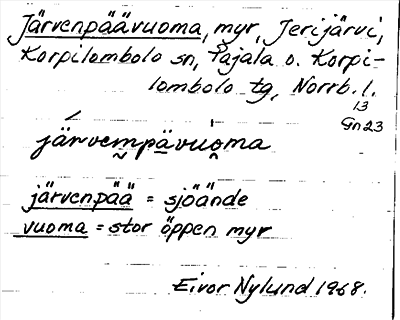 Järvenpäävuoma, myr, Jerijärvi,
Korpilombolo sn, Pajala o. Korpi-
lombolo tg, Norrb. l.
13
Gn23
järvempävuoma
järvenpää = sjöände
vuoma = stor öppen myr
Eivor Nylund 1968.